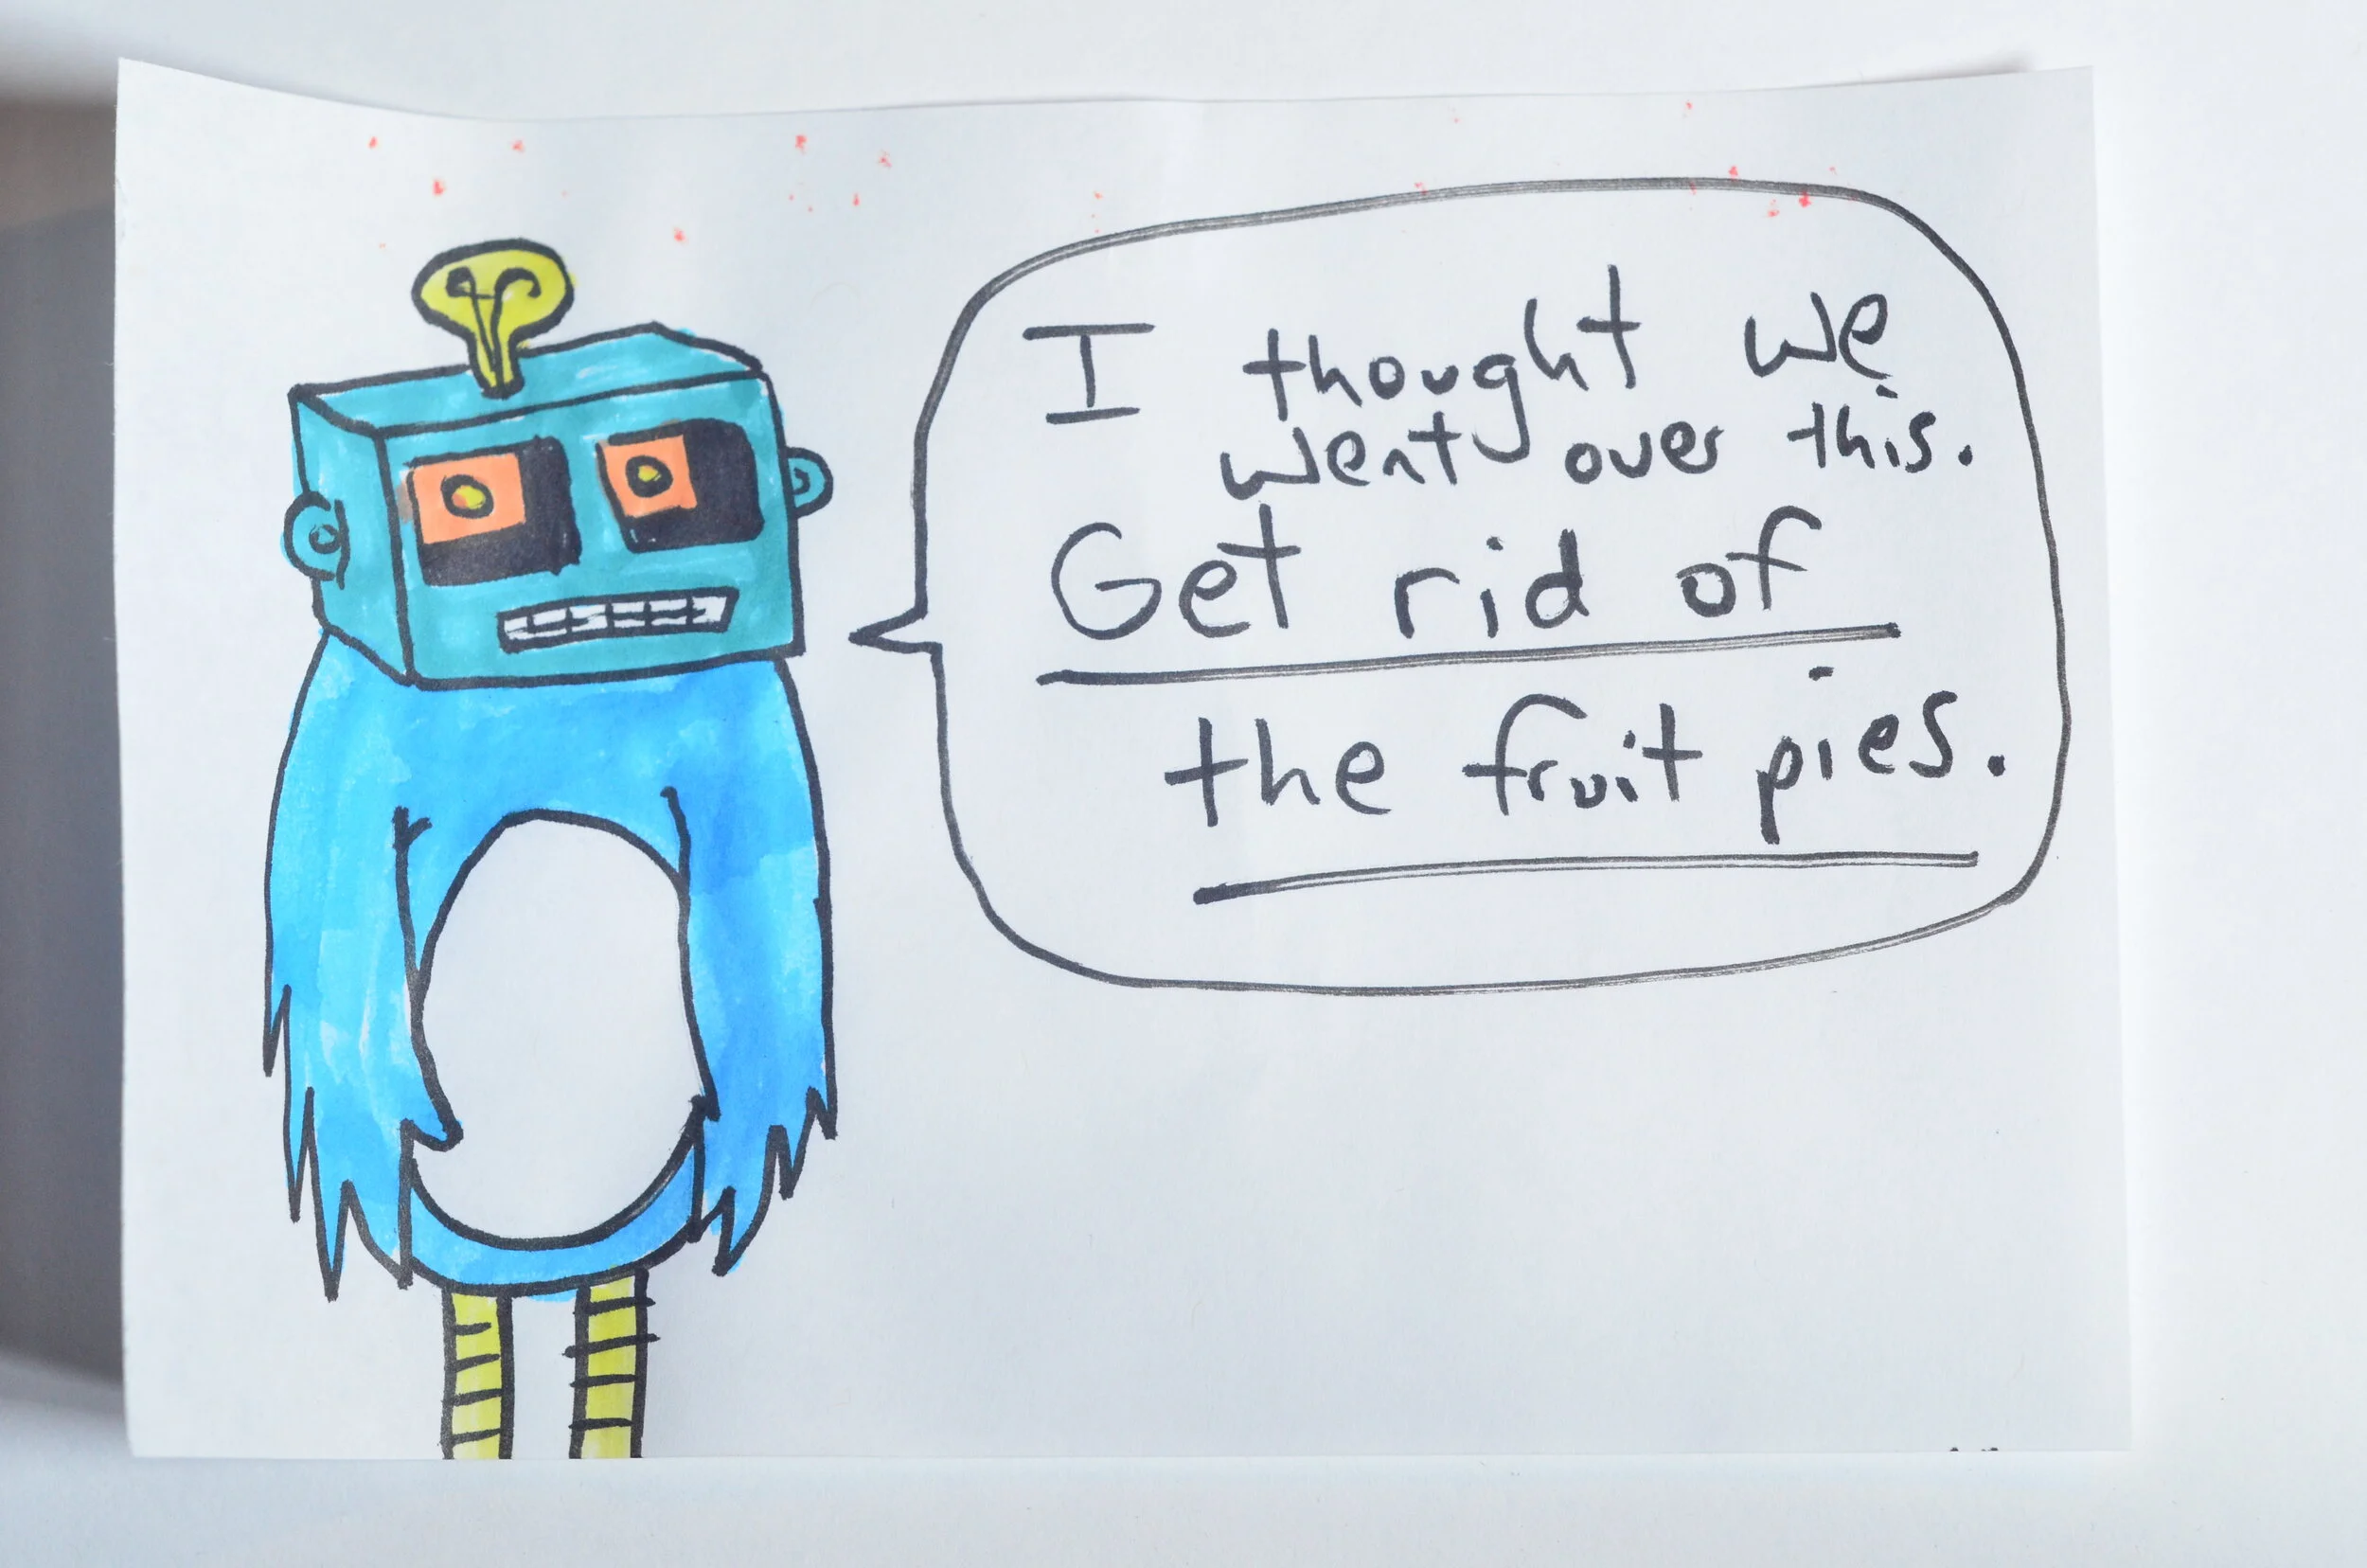 I thought we
went over this.
Get rid of
the fruit pies.